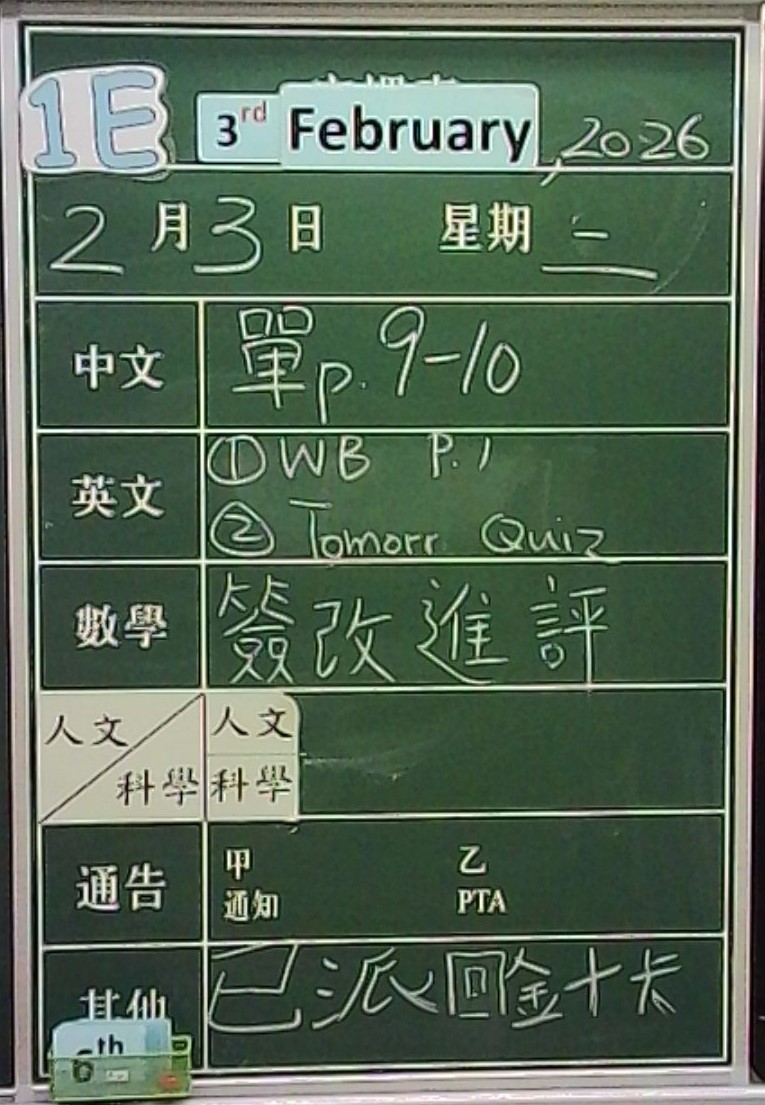 1E 3rd February, 2026
2月3日 星期二
中文 單p. 9-10
英文 ① WB P.1
② Tomorr. Quiz
數學 簽改進評
人文 人文
科學 科學
通告 甲 乙
通知 PTA
其他 已派回金十卡
6th